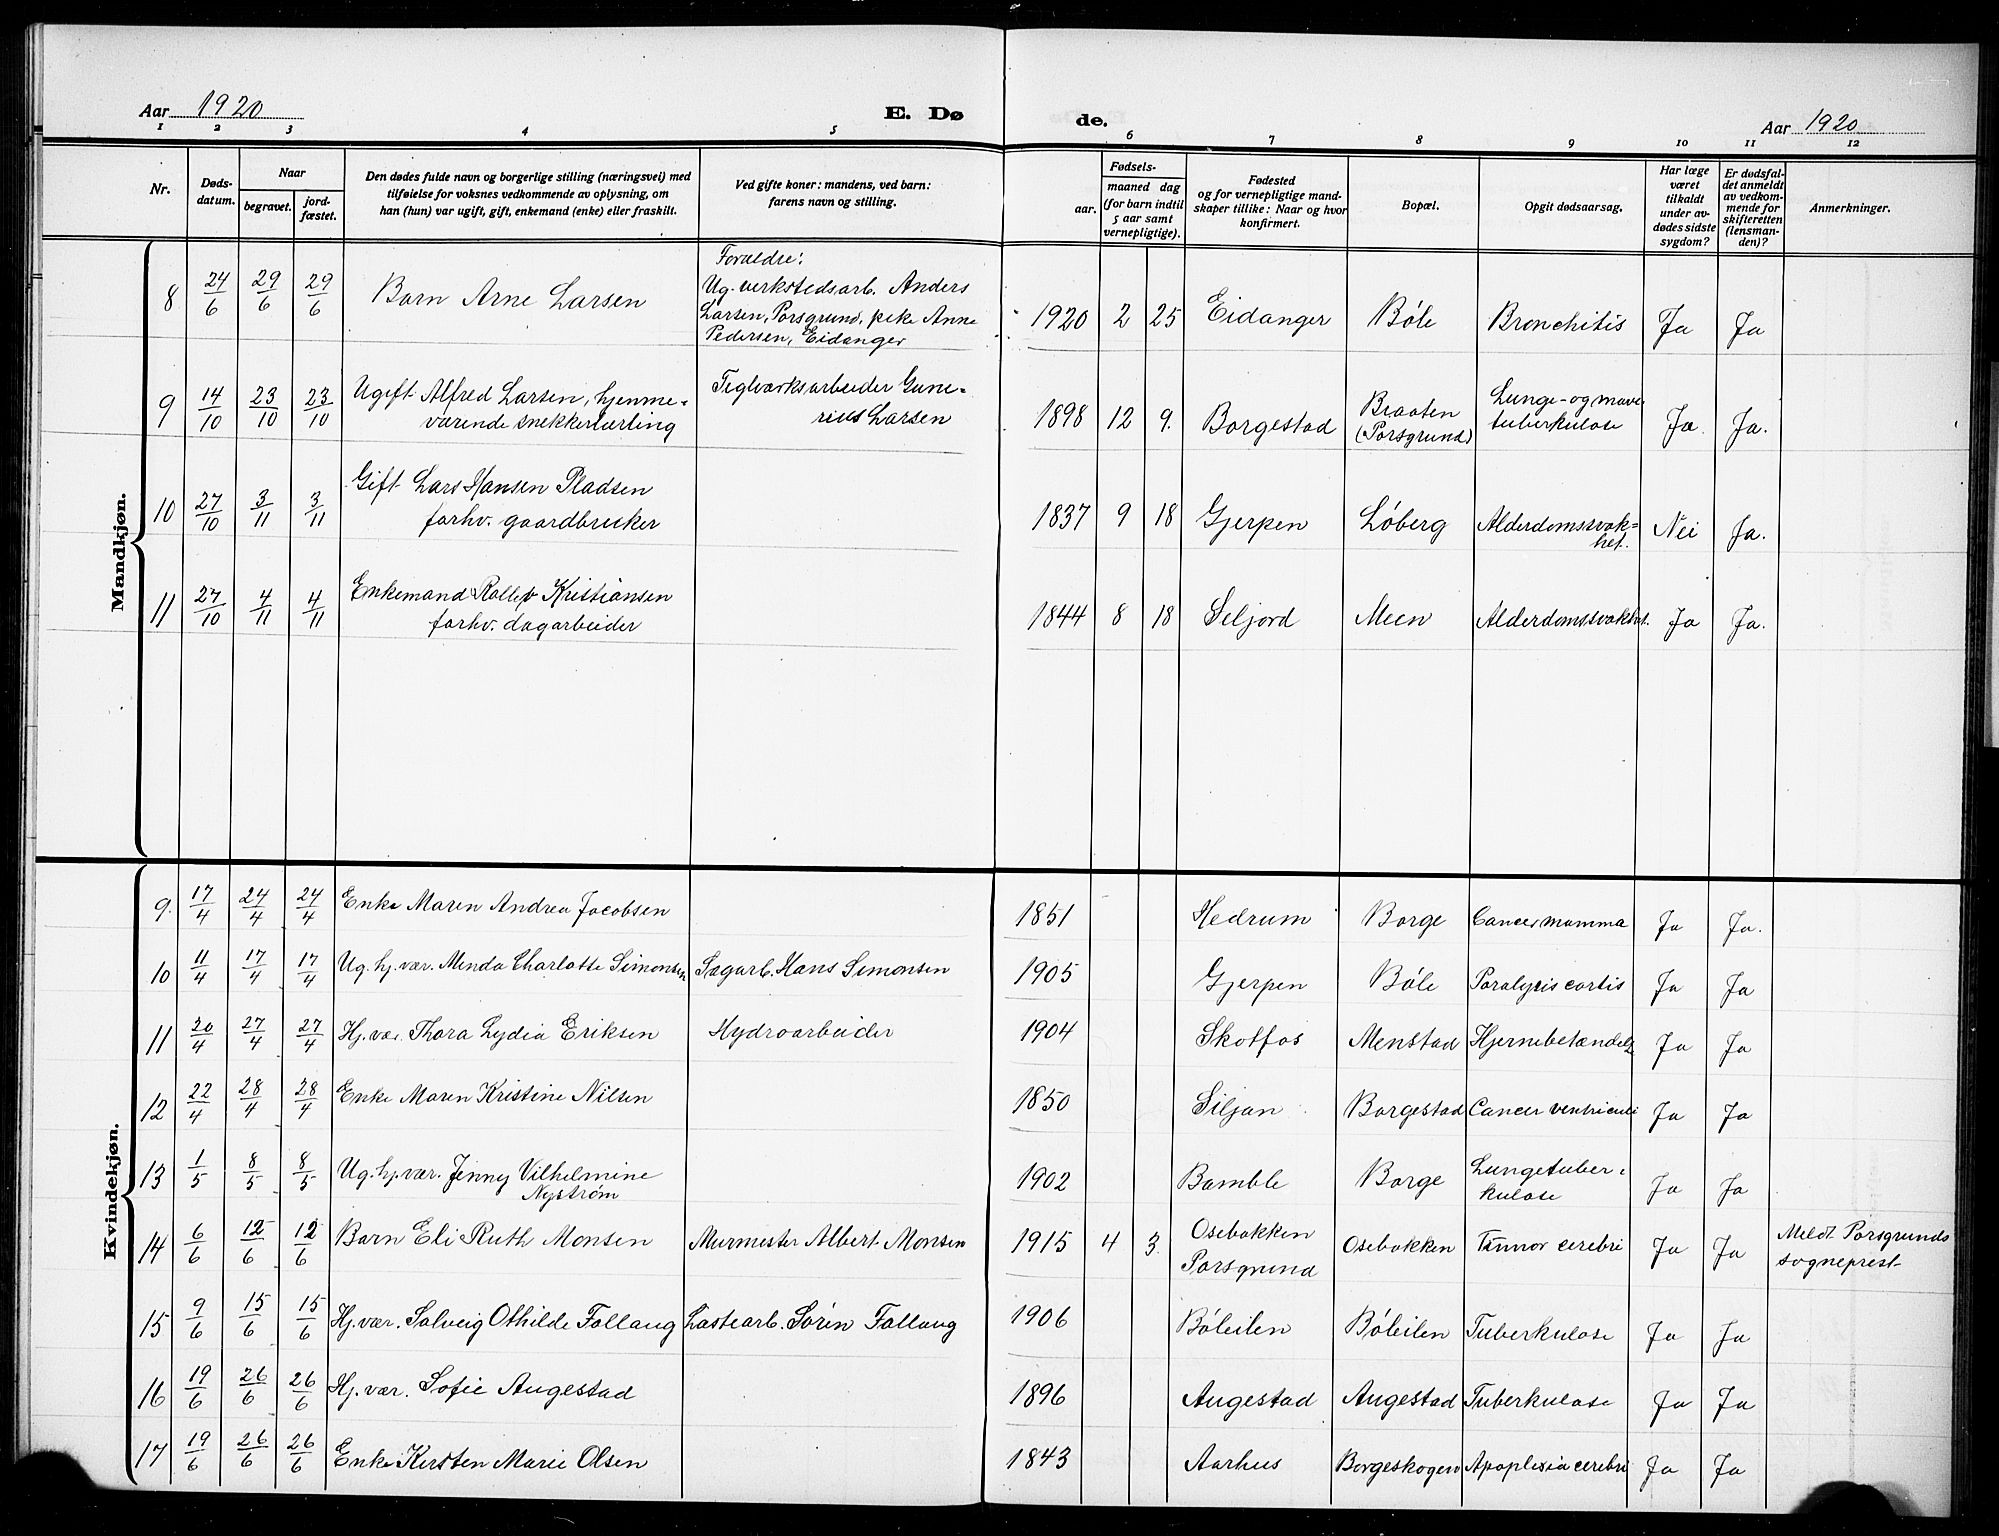 Aar 1920
E. Dø
de.
Aar 1920
1 2 3 4 5 6 7 8 9 10 11 12
Nr.
Døds-
datum.
Naar
begravet.
jord-
fæstet.
Den dødes fulde navn og borgerlige stilling (næringsvei) med
tilføielse for voksnes vedkommende av oplysning, om
han (hun) var ugift, gift, enkemand (enke) eller fraskilt.
Ved gifte koner: mandens, ved barn:
farens navn og stilling.
Fødsels-
aar.
maaned dag
(for barn indtil
5 aar samt
vernepligtige).
Fødested
og for vernepligtige mand-
skaper tillike: Naar og hvor
konfirmert.
Bopæl.
Opgit dødsaarsag.
Har læge
været
tilkaldt
under av-
dødes sidste
sygdom?
Er dødsfal-
det anmeldt
av vedkom-
mende for
skifteretten
(lensman-
den)?
Anmerkninger.
Mandkjøn.
8 24/6 29/6 29/6 Barn Arne Larsen
Forældre:
Ug. verkstedsarb. Anders
Larsen, Porsgrund, pike Anne
Pedersen, Eidanger
1920 2 25 Eidanger Bøle Bronchitis Ja Ja
9 14/10 23/10 23/10 Ugift Alfred Larsen, hjemme-
værende snekkerlærling
Teglværksarbeider Gune-
rius Larsen
1898 12 9. Borgestad
Braaten
(Porsgrund)
Lunge- og mave
tuberkulose
Ja. Ja.
10 27/10 3/11 3/11 Gift Lars Hansen Pladsen
forhv. gaardbruker
1837 9 18 Gjerpen Løberg Alderdomssvak-
het. Nei Ja.
11 27/10 4/11 4/11 Enkemand Rollef Kristiansen
forhv. dagarbeider
1844 8 18 Seljord Meen Alderdomssvakhet. Ja Ja.
Kvindekjøn.
9. 17/4 24/4 24/4 Enke Maren Andrea Jacobsen 1851 Hedrum Borge Cancer mamma Ja Ja.
10 11/4 17/4 17/4 Ug. hj. vær. Minda Charlotte Simonsen Sagarb. Hans Simonsen 1905 Gjerpen Bøle Paralysis cortis Ja Ja
11 20/4 27/4 27/4 Hj. vær. Thora Lydia Eriksen Hydroarbeider 1904 Skotfos Menstad Hjernebetændelse Ja Ja
12 22/4 28/4 28/4 Enke Maren Kristine Nilsen 1850 Siljan Borgestad Cancer ventriculi Ja Ja
13 1/5 8/5 8/5 Ug. hj. vær. Jenny Vilhelmine
Nystrøm
1902 Bamble Borge Lungetuber-
kulose Ja Ja
14 6/6 12/6 12/6 Barn Eli Ruth Monsen Murmester Albert Monsen 1915 4 3. Osebakken
Porsgrund
Osebakken Tumor cerebri Ja Ja
Meldt Porsgrunds
sogneprest
15 9/6 15/6 15/6 Hj. vær. Solveig Othilde Follaug Lastearb. Sørin Follaug 1906 Bøleilen Bøleilen Tuberkulose Ja Ja
16 19/6 26/6 26/6 Hj. vær. Sofie Augestad 1896 Augestad Augestad Tuberkulose Ja Ja
17 19/6 26/6 26/6 Enke Kirsten Marie Olsen 1843 Aarhus Borgeskogen Apoplexia cerebri Ja Ja